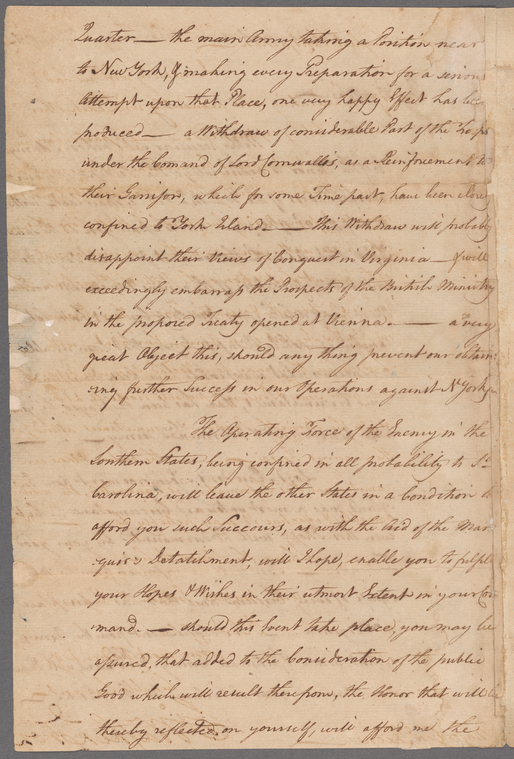 Quarter — the main Army taking a Position near
to New York, & making every Preparation for a serious
Attempt upon that Place, one very happy Effect has be
produced — a Withdraw of considerable Part of the Troops
under the Comand of Lord Cornwallis, as a Reinforcement to
their Garrison, which for some Time past, have been closely
confined to York Island. — This Withdraw will probably
disappoint their Views of Conquest in Virginia — & will
exceedingly embarrass the Prospects of the British Ministry
in the proposed Treaty opened at Vienna. — a very
great Object this, should any thing prevent our obtain
ing further Success in our Operations against N York
The Operating Force of the Enemy in the
Southern States, being confined in all probability to So
Carolina, will leave the other States in a Condition to
afford you such Succours, as with the Aid of the Mar
quis's Detatchment, will I hope, enable you to fulfil
your Hopes & Wishes in their utmost Extent in your Com
mand. — should this Event take place, you may be
assured, that added to the Consideration of the public
Good which will result therefrom, the Honor that will be
thereby reflected on yourself, will afford me the